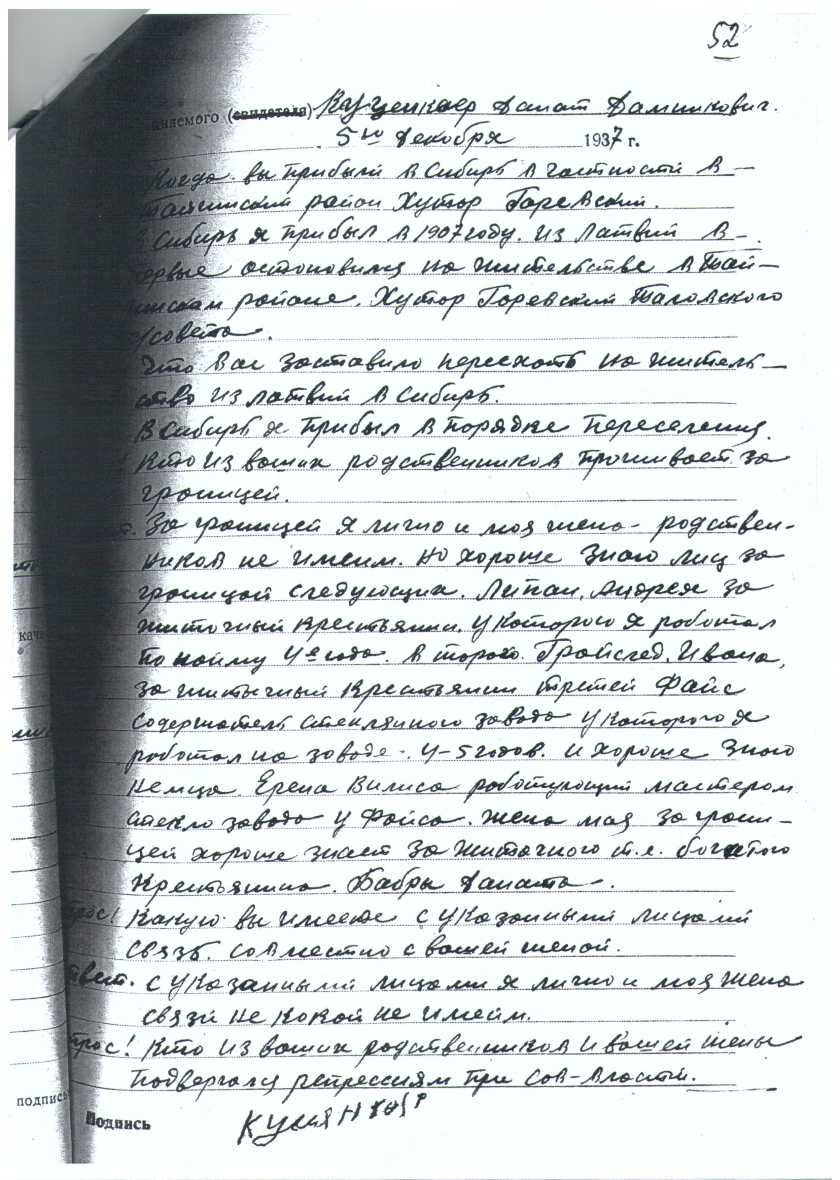 52
няемого (свидетеля) Куценкоер Данат Даминкович.
5го декабря 1937 г.
Когда вы прибыли в Сибирь в частности в
район Хутор Горевский.
В Сибирь я прибыл в 1907 году. Из Латвий в-
первые остоновился на жительстве в Тай-
районе, Хутор Горевский Таловского
совета.
Что Вас заставило переехать на житель-
ство из Латвий в Сибирь.
В Сибирь я прибыл в порядке переселения
Кто из ваших родственников проживает за
границей.
т. За границей я лично и моя жена - родствен-
ников не имеим. но хороше знаю лиц за
границой следующих. Липан, Андрея за
житочный крестьянин. у которого я работал
по найму 4е года. второго. Гройслед, Ивана,
за житычный крестьянин третей Файс
содержатель стеклянного завода у которого я
работал на заводе. 4-5 годов. и хороше знаю
немца Ерена Вилиса работующий мастером
стекло завода у Файса. жена моя за грани-
цей хороше знает за житочного т.е. богатого
крестьянина. Бабры Даната.
прос! Какую вы имеете с указанными лицами
связь. совместно с вашей женой.
твет. с указанными лицами я лично и моя жена
связи не какой не имеим.
прос! Кто из ваших родственников и вашей жены
подвергался репрессиям при сов-власти.
кача
подпись
Подпись